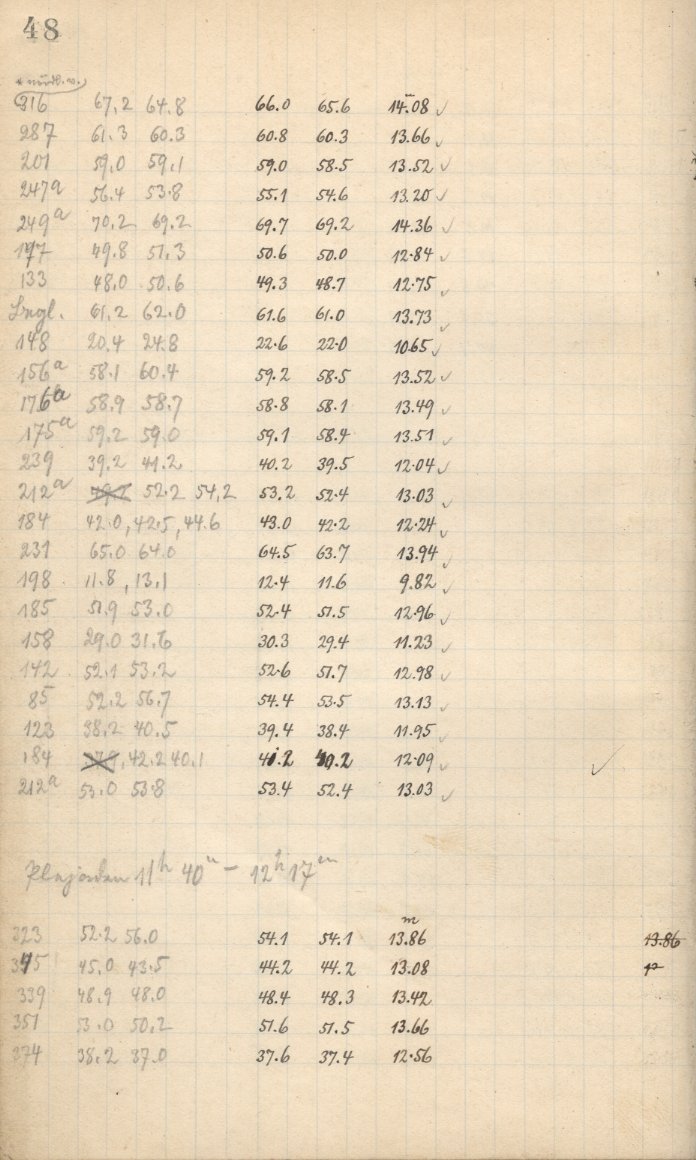 48
* nördl. v.
316 67.2 64.8 66.0 65.6 14.08 ✓
287 61.3 60.3 60.8 60.3 13.66 ✓
201 59.0 59.1 59.0 58.5 13.52 ✓
247a 56.4 53.8 55.1 54.6 13.20 ✓
249a 70.2 69.2 69.7 69.2 14.36 ✓
197 49.8 51.3 50.6 50.0 12.84 ✓
133 48.0 50.6 49.3 48.7 12.75 ✓
61.2 62.0 61.6 61.0 13.73 ✓
148 20.4 24.8 22.6 22.0 10.65 ✓
156a 58.1 60.4 59.2 58.5 13.52 ✓
176a 58.9 58.7 58.8 58.1 13.49 ✓
175a 59.2 59.0 59.1 58.4 13.51 ✓
239 39.2 41.2 40.2 39.5 12.04 ✓
212a 52.2 54.2 53.2 52.4 13.03 ✓
184 42.0, 42.5, 44.6 43.0 42.2 12.24 ✓
231 65.0 64.0 64.5 63.7 13.94 ✓
198 11.8, 13.1 12.4 11.6 9.82 ✓
185 51.9 53.0 52.4 51.5 12.96 ✓
158 29.0 31.6 30.3 29.4 11.23 ✓
142 52.1 53.2 52.6 51.7 12.98 ✓
85 52.2 56.7 54.4 53.5 13.13 ✓
123 38.2 40.5 39.4 38.4 11.95 ✓
184 , 42.2 40.1 41.2 40.2 12.09 ✓ ✓
212a 53.0 53.8 53.4 52.4 13.03 ✓
Plejaden 11h 40m – 12h 17m
m
323 52.2 56.0 54.1 54.1 13.86 13.86
345 45.0 43.5 44.2 44.2 13.08
339 48.9 48.0 48.4 48.3 13.42
351 53.0 50.2 51.6 51.5 13.66
374 38.2 37.0 37.6 37.4 12.56